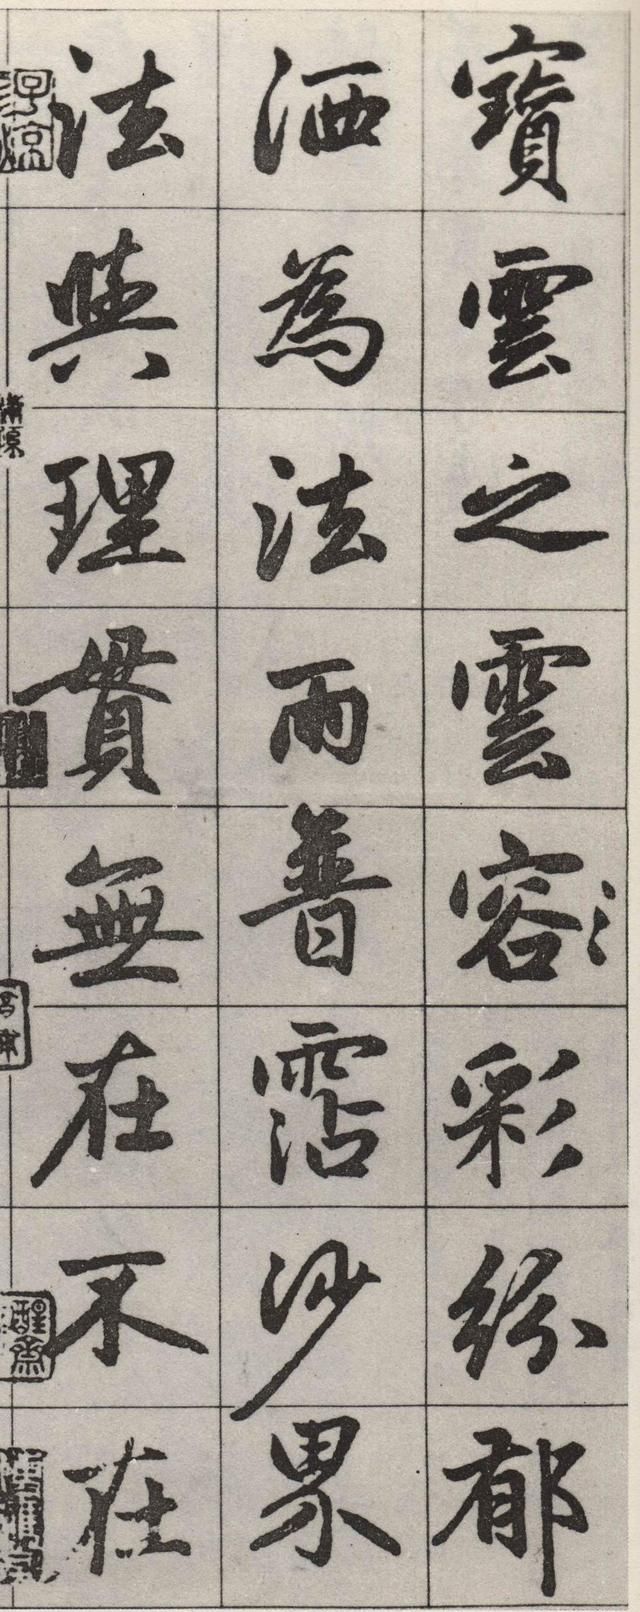 寶雲之雲容彩紛郁
洒為法雨普霑沙界
法與理貫無在不在